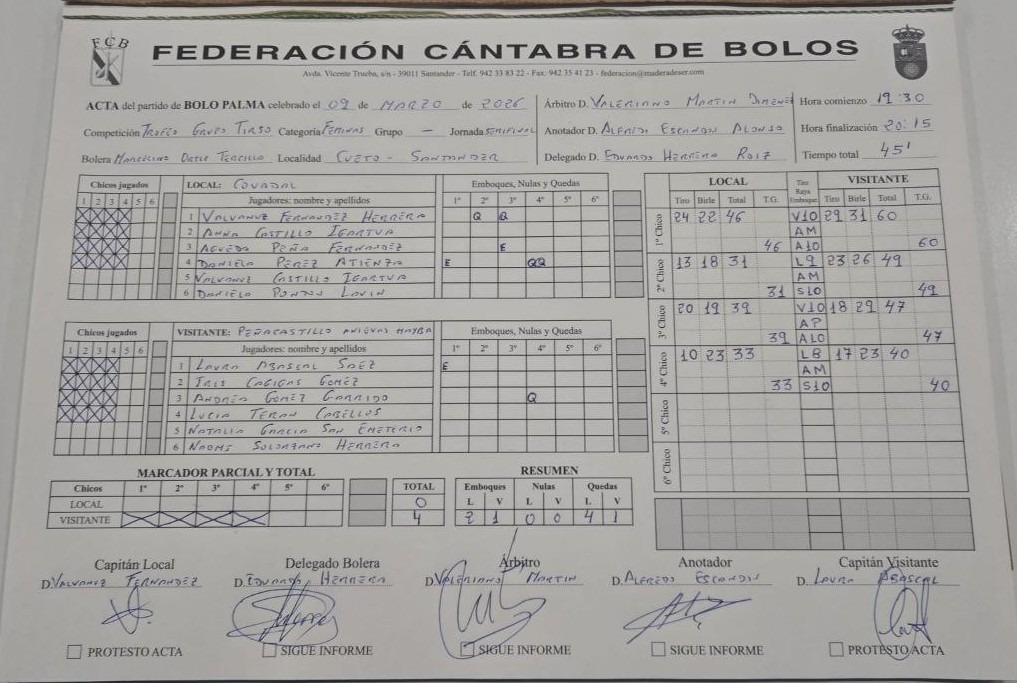 FCB
FEDERACIÓN CÁNTABRA DE BOLOS
Avda. Vicente Trueba, s/n - 39011 Santander - Telf. 942 33 83 22 - Fax: 942 35 41 23 - federacion@maderadeser.com
ACTA del partido de BOLO PALMA celebrado el 09 de MARZO de 2026
Árbitro D. VALERIANO MARTIN
Hora comienzo 19:30
Competición TROFEO GRUPO TIRSO Categoría FEMINAS Grupo - Jornada SEMIFINAL
Anotador D. ALFREDO ESCANDON ALONSO
Hora finalización 20:15
Bolera MARCELINO ORTIZ TERCILLA Localidad CUETO - SANTANDER
Delegado D. EDUARDO HERRERA ROIZ
Tiempo total 45'
Chicos jugados LOCAL: COVADAL Emboques, Nulas y Quedas
1 2 3 4 5 6 Jugadores: nombre y apellidos 1º 2º 3º 4º 5º 6º
1 VALVANUZ FERNANDEZ HERRERA Q Q
2 ANNA CASTILLO IGARTUA
3 AGUEDA PEÑA FERNANDEZ E
4 DANIELA PEREZ ATIENZA E QQ
5 VALVANUZ CASTILLO IGARTUA
6 DANIELA LAVIN
Chicos jugados VISITANTE: PEÑACASTILLO ANIEVAS MAYBA Emboques, Nulas y Quedas
1 2 3 4 5 6 Jugadores: nombre y apellidos 1º 2º 3º 4º 5º 6º
1 LAURA ABASCAL SAEZ E
2 IRIS CAGIGAS GOMEZ
3 ANDREA GOMEZ GARRIDO Q
4 LUCIA TERAN CABELLOS
5 NATALIA GARCIA SAN EMETERIO
6 NAOMI SOLORZANO HERRERA
LOCAL Tiro Raya Emboque VISITANTE
Tiro Birle Total T.G. Tiro Birle Total T.G.
1º Chico 24 22 46 V10 29 31 60
AM
46 A10 60
2º Chico 13 18 31 L9 23 26 49
AM
31 S10 49
3º Chico 20 19 39 V10 18 29 47
AP
39 AL0 47
4º Chico 10 23 33 L8 17 23 40
AM
33 S10 40
5º Chico
6º Chico
MARCADOR PARCIAL Y TOTAL
Chicos 1º 2º 3º 4º 5º 6º TOTAL
LOCAL 0
VISITANTE 4
RESUMEN
Emboques Nulas Quedas
L V L V L V
2 1 0 0 4 1
Capitán Local Delegado Bolera Árbitro Anotador Capitán Visitante
D. VALVANUZ FERNANDEZ D. EDUARDO HERRERA D. VALERIANO MARTIN D. ALFREDO ESCANDON D. LAURA ABASCAL
PROTESTO ACTA SIGUE INFORME SIGUE INFORME SIGUE INFORME PROTESTO ACTA